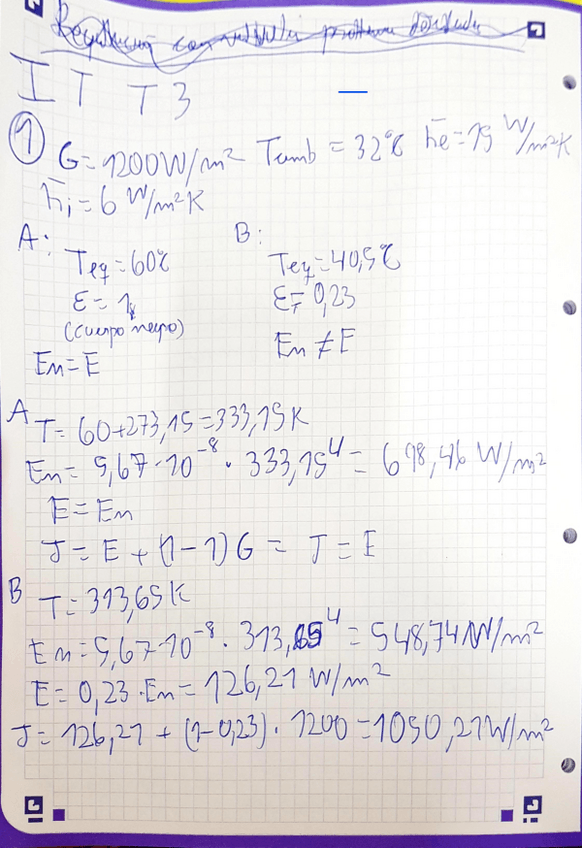 IT T3
① G=1200W/m² Tamb = 32ºC h̄e=15 W/m²K
h̄i=6 W/m²K
A:
Teq=60ºC
ε=1
(cuerpo negro)
En=E
B:
Teq=40,5ºC
ε=0,23
En≠E
A T= 60+273,15=333,15K
En= 5,67·10⁻⁸ · 333,15⁴= 698,46 W/m²
E=En
J= E + (1-1)G = J=E
B T=313,65K
En=5,67·10⁻⁸ · 313,65⁴=548,74W/m²
E= 0,23·En= 126,21 W/m²
J= 126,21 + (1-0,23)· 1200=1050,21W/m²